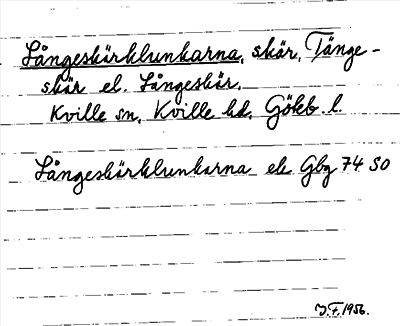 Långeskärklunkarna, skär, Tånge-
skär el. Långeskär.
Kville sn, Kville hd, Göteb. l.
Långeskärklunkarna ek Gbg 74 SO
J.F. 1956.